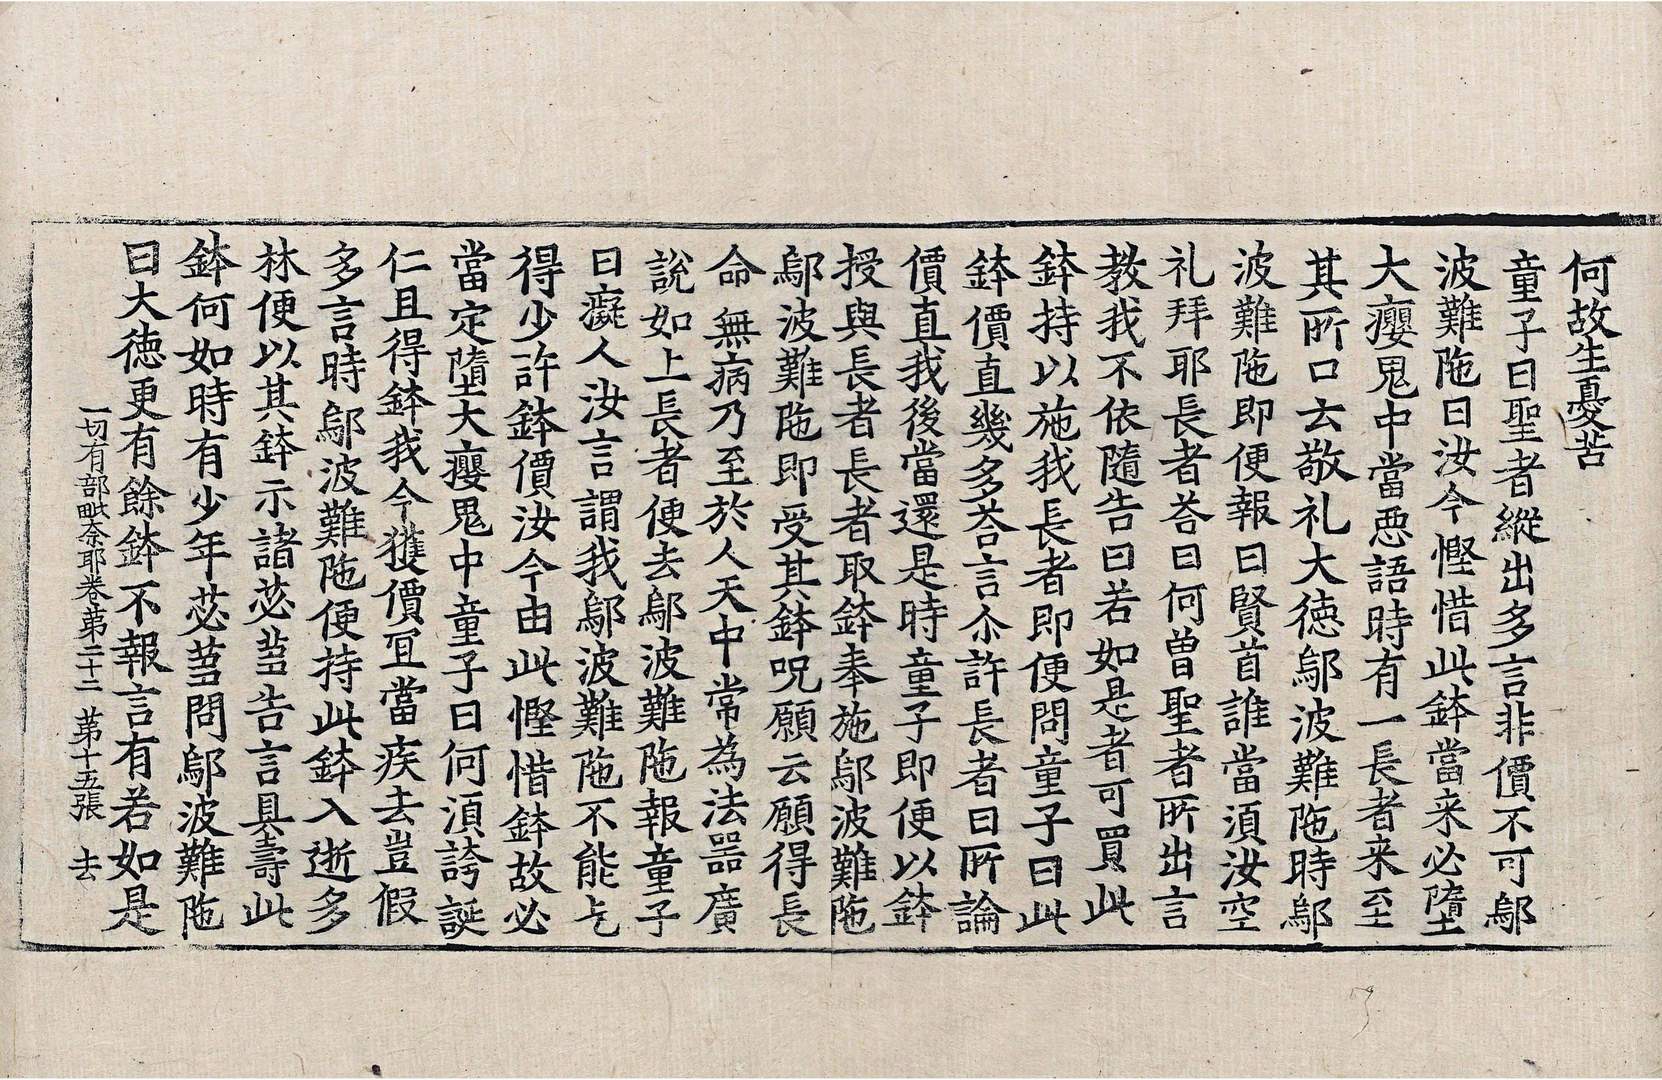 何故生憂苦
童子曰聖者縱出多言非價不可鄔
波難陁曰汝今慳惜此鉢當来必墮
大癭鬼中當惡語時有一長者来至
其所口云敬礼大徳鄔波難陁時鄔
波難陁即便報曰賢首誰當湏汝空
礼拜耶長者荅曰何曽聖者所出言
教我不依隨告曰若如是者可買此
鉢持以施我長者即便問童子曰此
鉢價直幾多荅言尒許長者曰所論
價直我後當還是時童子即便以鉢
授與長者長者取鉢奉施鄔波難陁
鄔波難陁即受其鉢呪願云願得長
命無病乃至於人天中常為法器廣
說如上長者便去鄔波難陁報童子
曰癡人汝言謂我鄔波難陁不能乞
得少許鉢價汝今由此慳惜鉢故必
當定墮大癭鬼中童子曰何湏誇誕
仁且得鉢我今獲價冝當疾去豈假
多言時鄔波難陁便持此鉢入逝多
林便以其鉢示諸苾芻告言具壽此
鉢何如時有少年苾芻問鄔波難陁
曰大徳更有餘鉢不報言有若如是
一切有部毗奈耶卷第二十二 第十五張 去